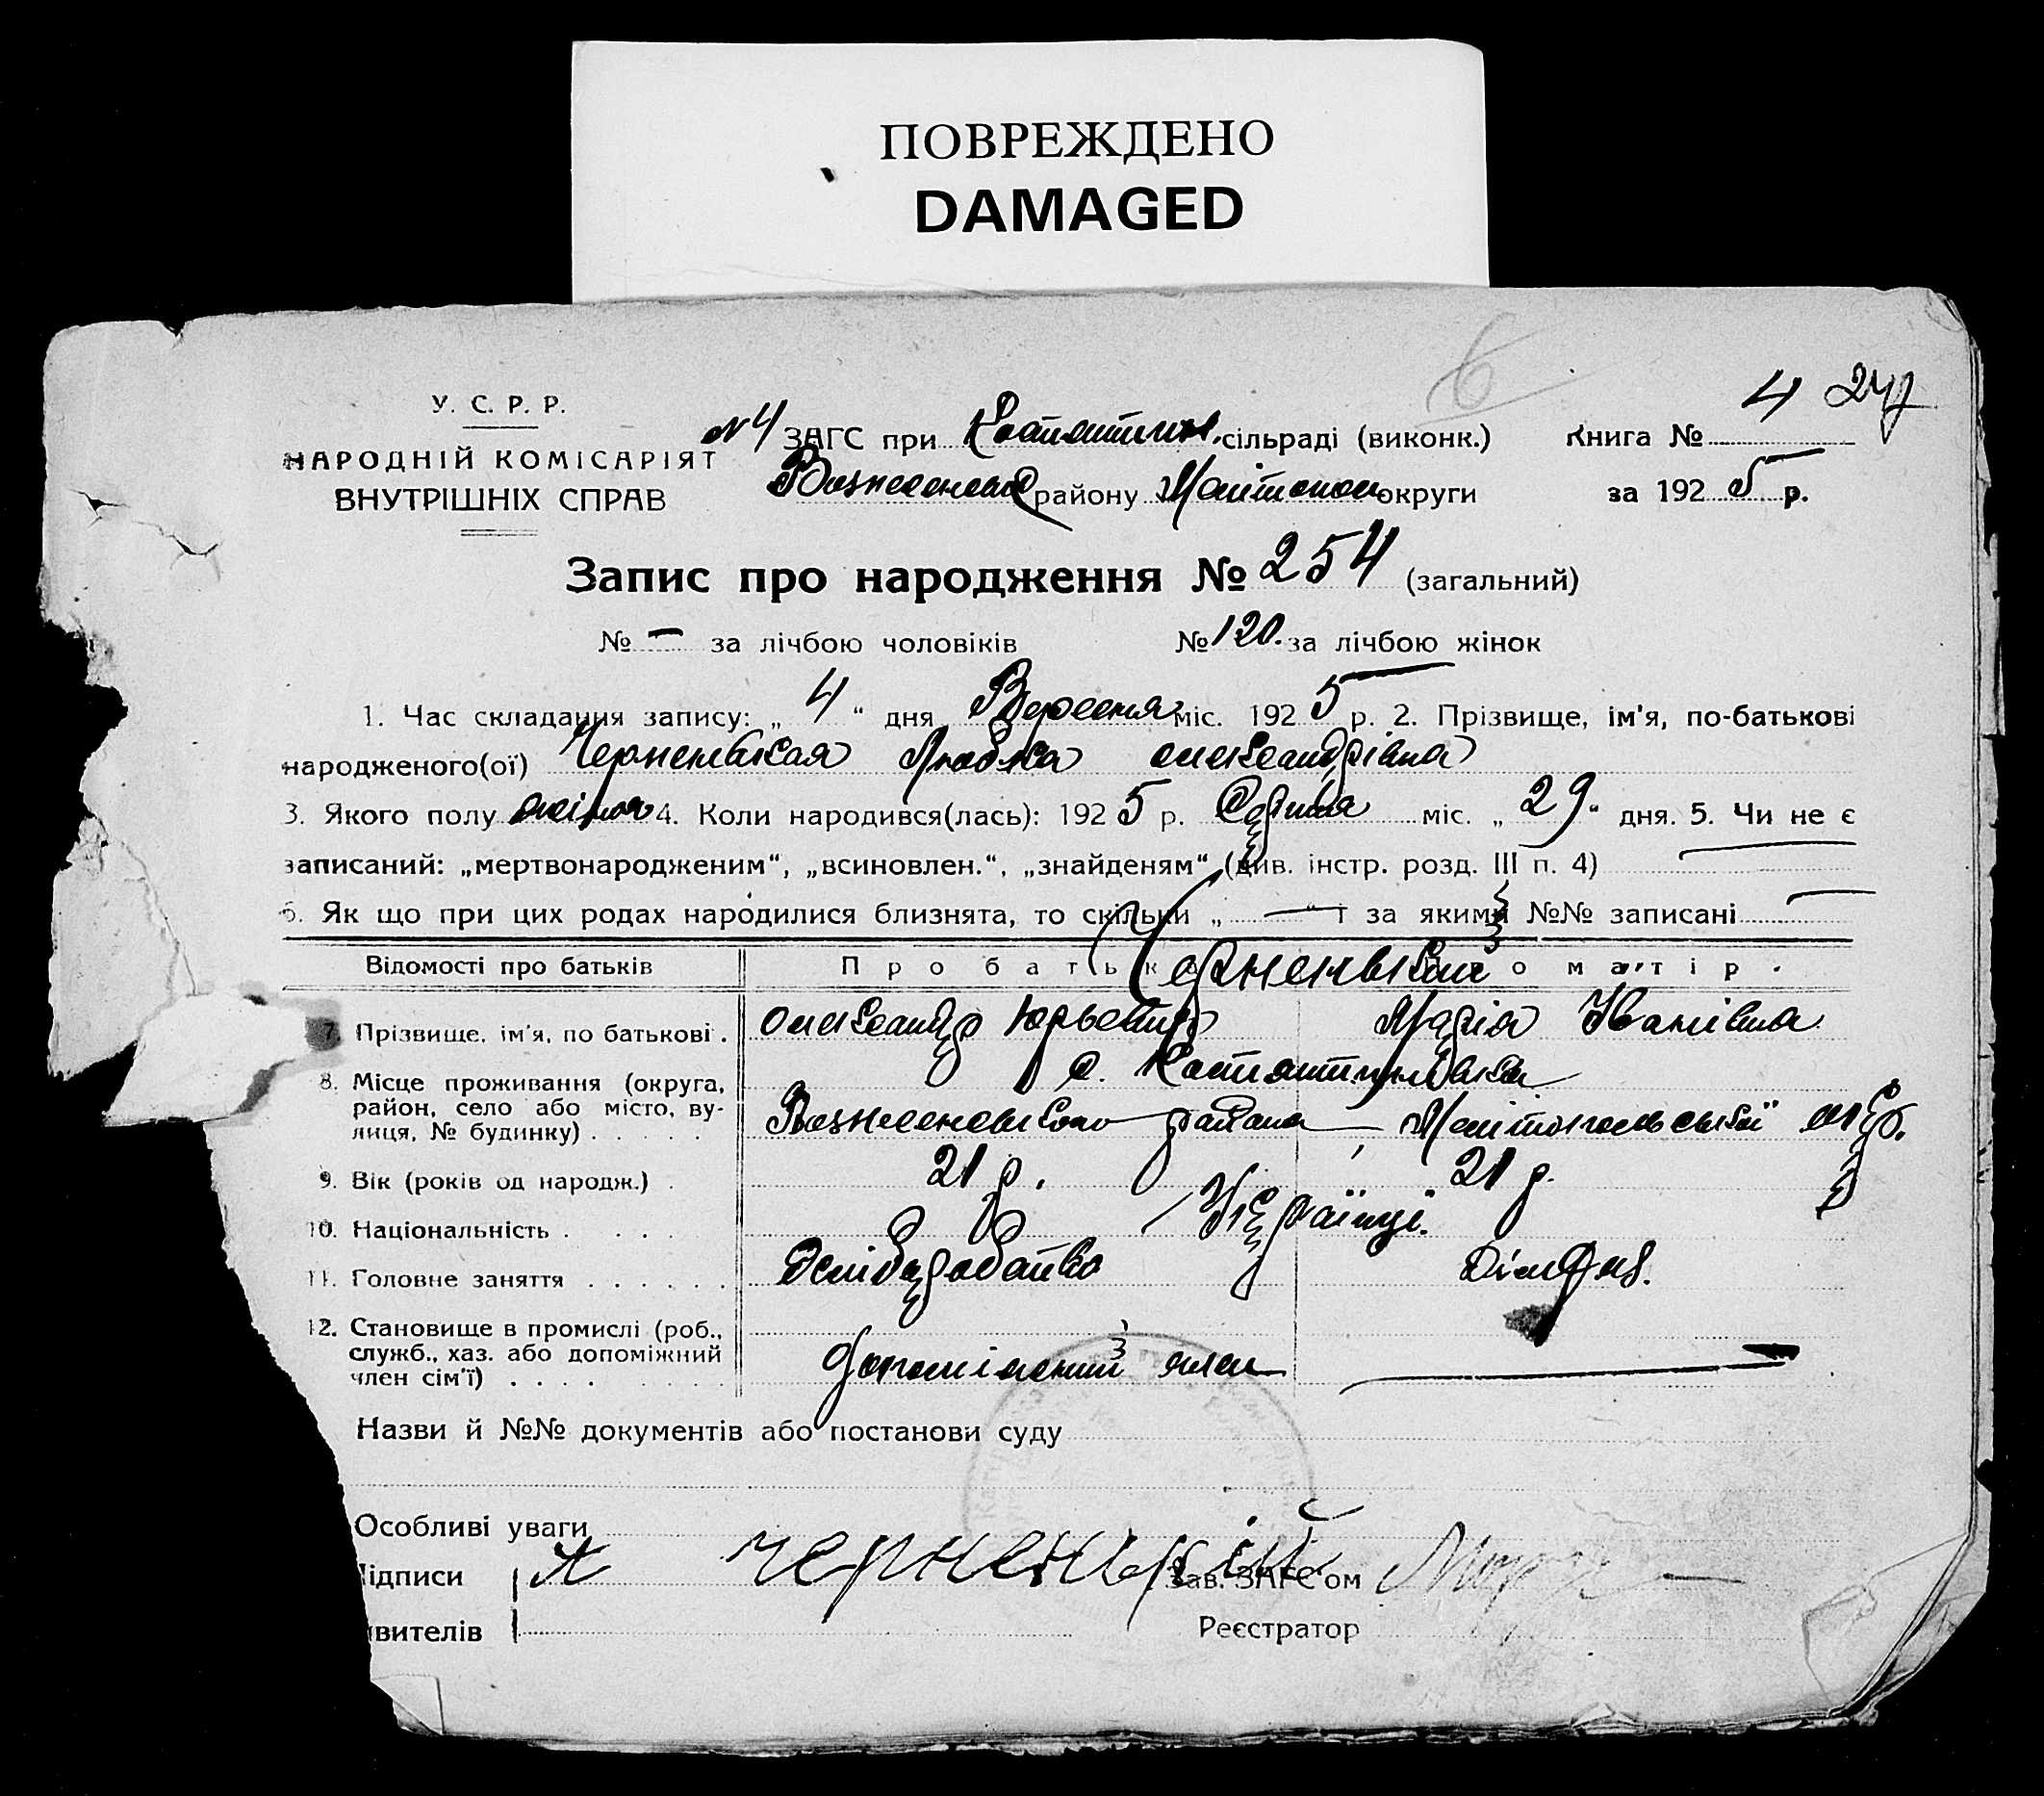 ПОВРЕЖДЕНО
DAMAGED
6
У. С. Р. Р.
НАРОДНІЙ КОМІСАРІЯТ
ВНУТРІШНІХ СПРАВ
№ 4 ЗАГС при Костянтинів. сільраді (виконк.) Книга № 4 247
Вознесенськ району Мелітопол округи за 1925 р.
Запис про народження № 254 (загальний)
№ — за лічбою чоловіків № 120. за лічбою жінок
1. Час складання запису: „ 4 “ дня Вересня міс. 1925 р. 2. Прізвище, ім'я, по-батькові
народженого(ої) Черненькая Любка Олександрівна
3. Якого полу жіноч 4. Коли народився(лась): 1925 р. Серпня міс. „ 29 “ дня. 5. Чи не є
записаний: „мертвонародженим“, „всиновлен.“, „знайденям“ (див. інстр. розд. III п. 4) —
6. Як що при цих родах народилися близнята, то скільки „ — “ і за якими №№ записані —
Відомості про батьків Про батька Про матір.
Черненький
7. Прізвище, ім'я, по батькові. Олександр Юрьевич Марія Іванівна
8. Місце проживання (округа, район, село або місто, вулиця, № будинку) с. Костянтинівка
Вознесенського района Мелітопольської окр.
9. Вік (років од народж.) 21 р. 21 р.
10. Національність Українці.
11. Головне заняття Хліборобство Дом
12. Становище в промислі (роб.,
служб., хаз. або допоміжний
член сім'ї) допоміжний член —
Назви й №№ документів або постанови суду
Особливі уваги
Підписи Черненький Зав. ЗАГС'ом
явителів Реєстратор